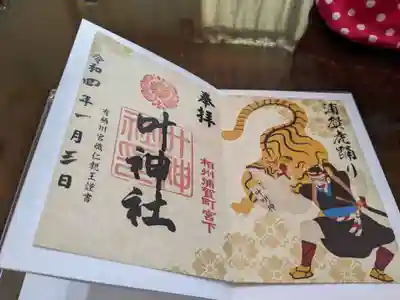 浦賀虎踊り
奉拝
相州浦賀町宮下
叶神社
有栖川宮熾仁親王謹書
令和四年一月三日